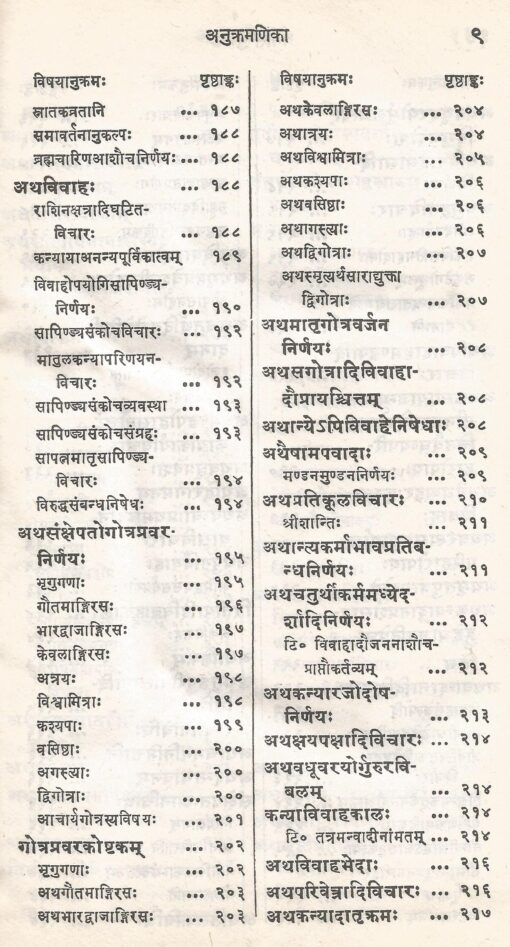 अनुक्रमणिका ९
विषयानुक्रमः पृष्ठाङ्कः
स्नातकव्रतानि ... १८७
समावर्तनानुकल्पः ... १८८
ब्रह्मचारिणआशौचनिर्णयः ... १८८
अथविवाहः ... १८८
राशिनक्षत्रादिघटित-
विचारः ... १८८
कन्यायाअनन्यपूर्विकात्वम् १८९
विवाहोपयोगिसापिण्ड्य-
निर्णयः ... १९०
सापिण्ड्यसंकोचविचारः ... १९२
मातुलकन्यापरिणयन-
विचारः ... १९२
सापिण्ड्यसंकोचव्यवस्था ... १९३
सापिण्ड्यसंकोचसंग्रहः ... १९३
सापत्नमातृसापिण्ड्य-
विचारः ... १९४
विरुद्धसंबन्धनिषेधः ... १९४
अथसंक्षेपतोगोत्रप्रवर-
निर्णयः ... १९५
भृगुगणाः ... १९५
गौतमाङ्गिरसः ... १९६
भारद्वाजाङ्गिरसः ... १९७
केवलाङ्गिरसः ... १९७
अत्रयः ... १९८
विश्वामित्राः ... १९८
कश्यपाः ... १९९
वसिष्ठाः ... २००
अगस्त्याः ... २००
द्विगोत्राः ... २००
आचार्यगोत्रस्यविषयः ... २०१
गोत्रप्रवरकोष्टकम् ... २०२
भृगुगणाः ... २०२
अथगौतमाङ्गिरसः ... २०३
अथभारद्वाजाङ्गिरसः ... २०३
विषयानुक्रमः पृष्ठाङ्कः
अथकेवलाङ्गिरसः ... २०४
अथात्रयः ... २०४
अथविश्वामित्राः ... २०५
अथकश्यपाः ... २०६
अथवसिष्ठाः ... २०६
अथागस्त्याः ... २०६
अथद्विगोत्राः ... २०७
अथस्मृत्यर्थसाराद्युक्ता
द्विगोत्राः ... २०७
अथमातृगोत्रवर्जन
निर्णयः ... २०८
अथसगोत्रादिविवाहा-
दौप्रायश्चित्तम् ... २०८
अथान्येऽपिविवाहेनिषेधाः २०८
अथैषामपवादाः ... २०९
मण्डनमुण्डननिर्णयः ... २०९
अथप्रतिकूलविचारः ... २१०
श्रीशान्तिः ... २११
अथान्त्यकर्माभावप्रतिब-
न्धनिर्णयः ... २११
अथचतुर्थीकर्ममध्येद-
र्शादिनिर्णयः ... २१२
टि० विवाहादौजननाशौच-
प्राप्तौकर्तव्यम् ... २१२
अथकन्यारजोदोष-
निर्णयः ... २१३
अथक्षयपक्षादिविचारः ... २१४
अथवधूवरयोर्गुरुरवि-
बलम् ... २१४
कन्याविवाहकालः ... २१४
टि० तत्रमन्वादीनांमतम् ... २१४
अथविवाहभेदाः ... २१६
अथपरिवेत्रादिविचारः ... २१६
अथकन्यादातृक्रमः ... २१७